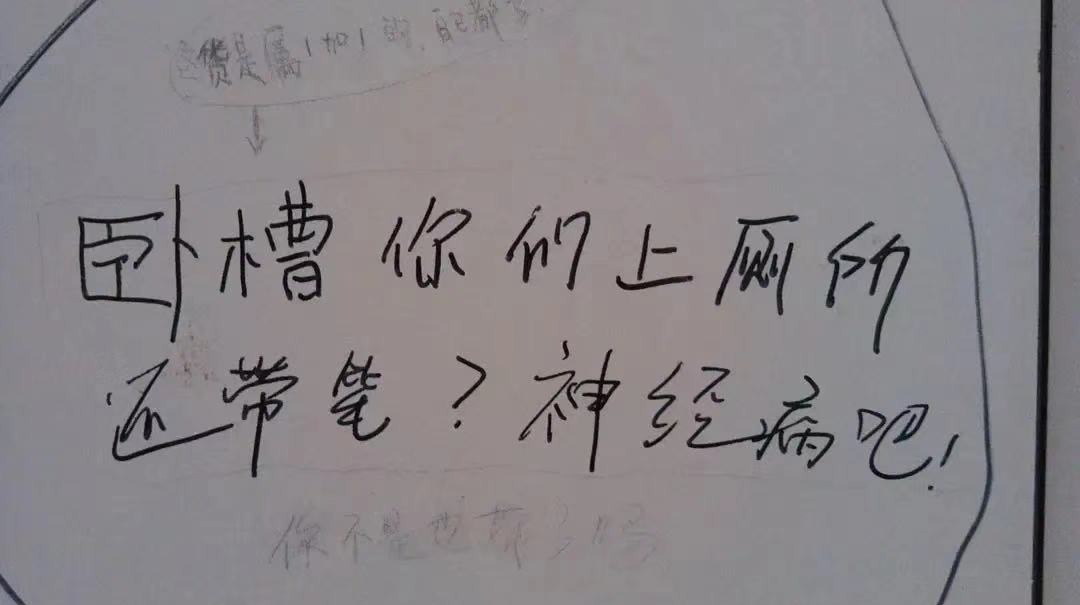 这货是属1加1的,自己都写
卧槽你们上厕所
还带笔?神经病吧!
你不是也带了吗